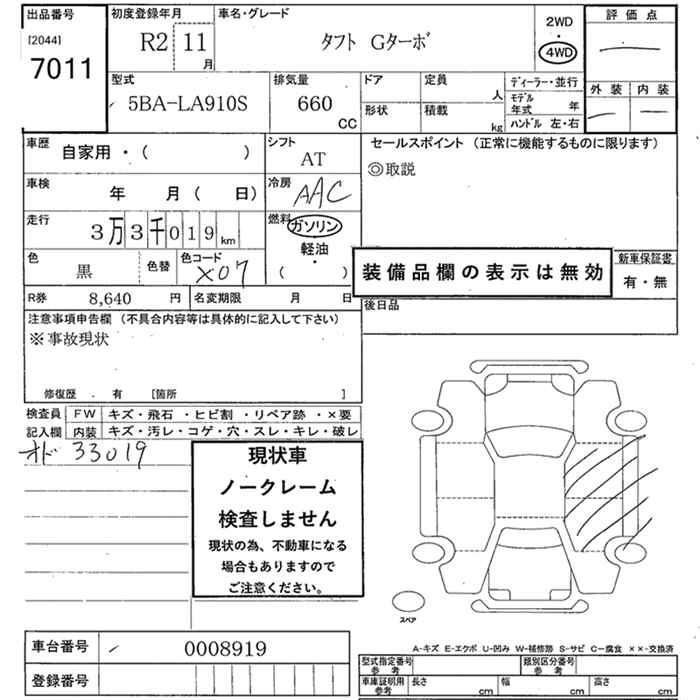 出品番号
[2044]
7011
初度登録年月
R2 11 月
車名・グレード
タフト Gターボ
2WD
・
4WD
評価点
外装 内装
型式
5BA-LA910S
排気量
660
CC
ドア
定員
人
形状
積載
kg
ディーラー・並行
モデル年式 年
ハンドル 左・右
車歴
自家用・( )
シフト
AT
セールスポイント (正常に機能するものに限ります)
◎取説
車検
年 月( 日)
冷房
AAC
走行
3万3千019km
燃料
ガソリン
軽油
・
( )
色
黒
色替
色コード
X07
装備品欄の表示は無効
新車保証書
有・無
R券
8,640 円
名変期限 月 日
後日品
注意事項申告欄 (不具合内容等は具体的に記入して下さい)
※事故現状
修復歴 . 有 [箇所 ]
検査員
記入欄
FW キズ・飛石・ヒビ割・リペア跡・×要
内装 キズ・汚レ・コゲ・穴・スレ・キレ・破レ
オド 33019
現状車
ノークレーム
検査しません
現状の為、不動車になる
場合もありますので
ご注意ください。
スペア
車台番号
0008919
登録番号
A-キズ E-エクボ U-凹み W-補修跡 S-サビ C-腐食 ××-交換済
型式指定番号
参考
類別区分番号
参考
車庫証明用
参考
長さ cm
幅 cm
高さ cm